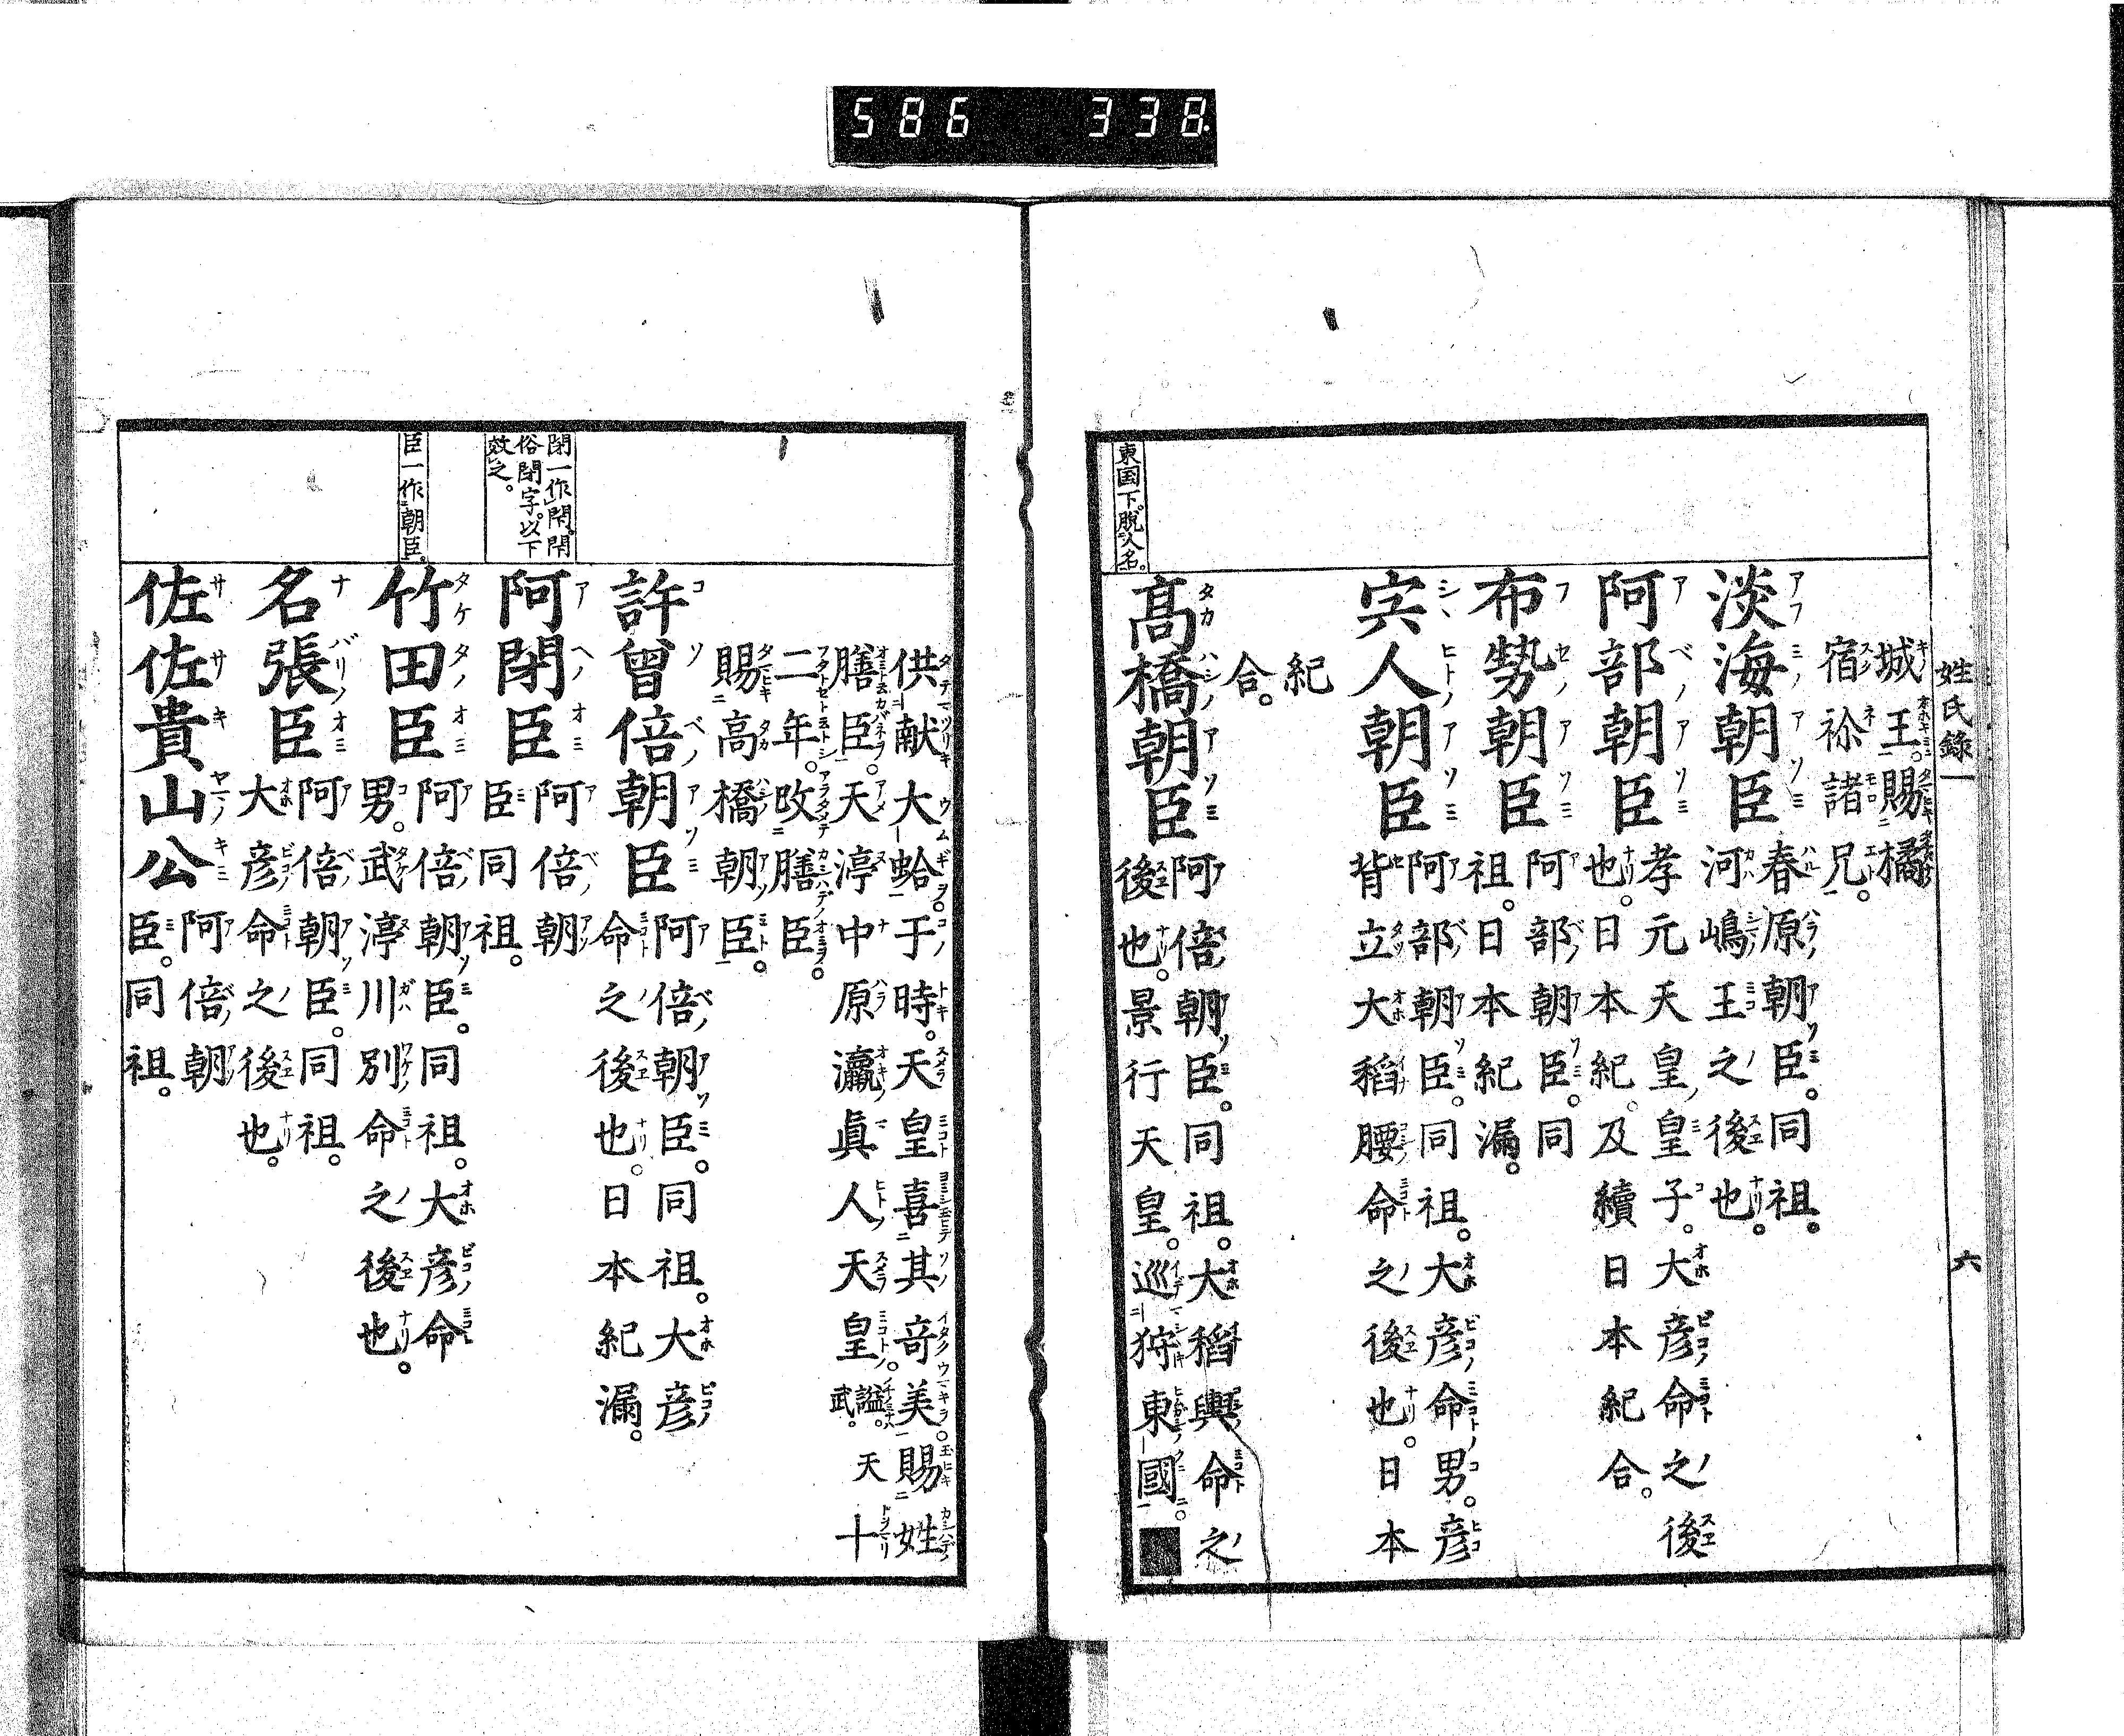 586 338.
姓氏錄一
六
城王。賜橘
宿祢諸兄。
淡海朝臣
春原朝臣。同祖。
河嶋王之後也。
阿部朝臣
孝元天皇皇子。大彦命之後
也。日本紀。及續日本紀合。
布勢朝臣
阿部朝臣。同
祖。日本紀漏。
宍人朝臣
阿部朝臣。同祖。大彦命男。彦
背立大稻腰命之後也。日本
紀
合。
東国下。脫人名。
髙橋朝臣
阿倍朝臣。同祖。大稻輿命之
後也。景行天皇。巡狩東國。
供献大蛤。于時。天皇喜其竒美。賜姓
膳臣。天渟中原瀛真人天皇。謚。天武。十
二年。改膳臣。
賜高橋朝臣。
許曾倍朝臣
阿倍朝臣。同祖。大彦
命之後也。日本紀漏。
閉一作閇。閇
俗閉字。以下
效之。
阿閉臣
阿倍朝
臣同祖。
臣一作朝臣。
竹田臣
阿倍朝臣。同祖。大彦命
男。武渟川別命之後也。
名張臣
阿倍朝臣。同祖。
大彦命之後也。
佐佐貴山公
阿倍朝
臣。同祖。